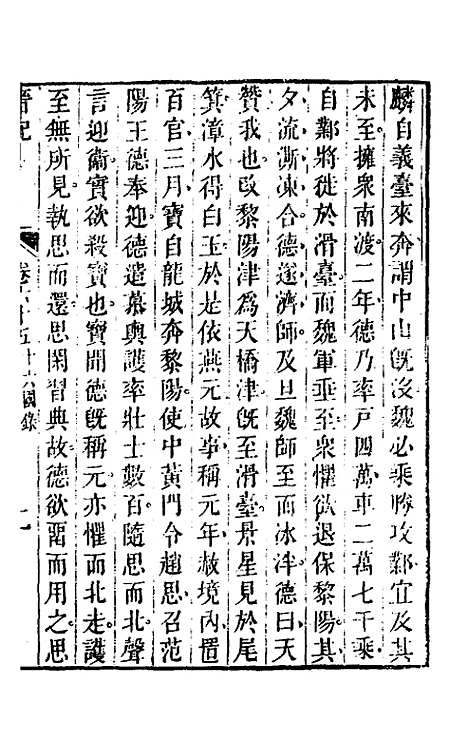 麟自義臺來奔謂中山旣沒魏必乘勝攻鄴宜及其
未至擁衆南渡二年德乃率戸四萬車二萬七千乘
自鄴將徙於滑臺而魏軍垂至衆懼欲退保黎陽其
夕流澌凍合德遂濟師及旦魏師至而冰泮德曰天
贊我也改黎陽津爲天橋津旣至滑臺景星見於尾
箕漳水得白玉於是依燕元故事稱元年赦境内置
百官三月寶自龍城奔黎陽使中黃門令趙思召范
陽王德奉迎德遣慕輿護率壯士數百隨思而北聲
言迎衛寶欲殺寶也寶聞德旣稱元亦懼而北走護
至無所見執思而還思閑習典故德欲畱而用之思
晉記
卷六十五十六國錄